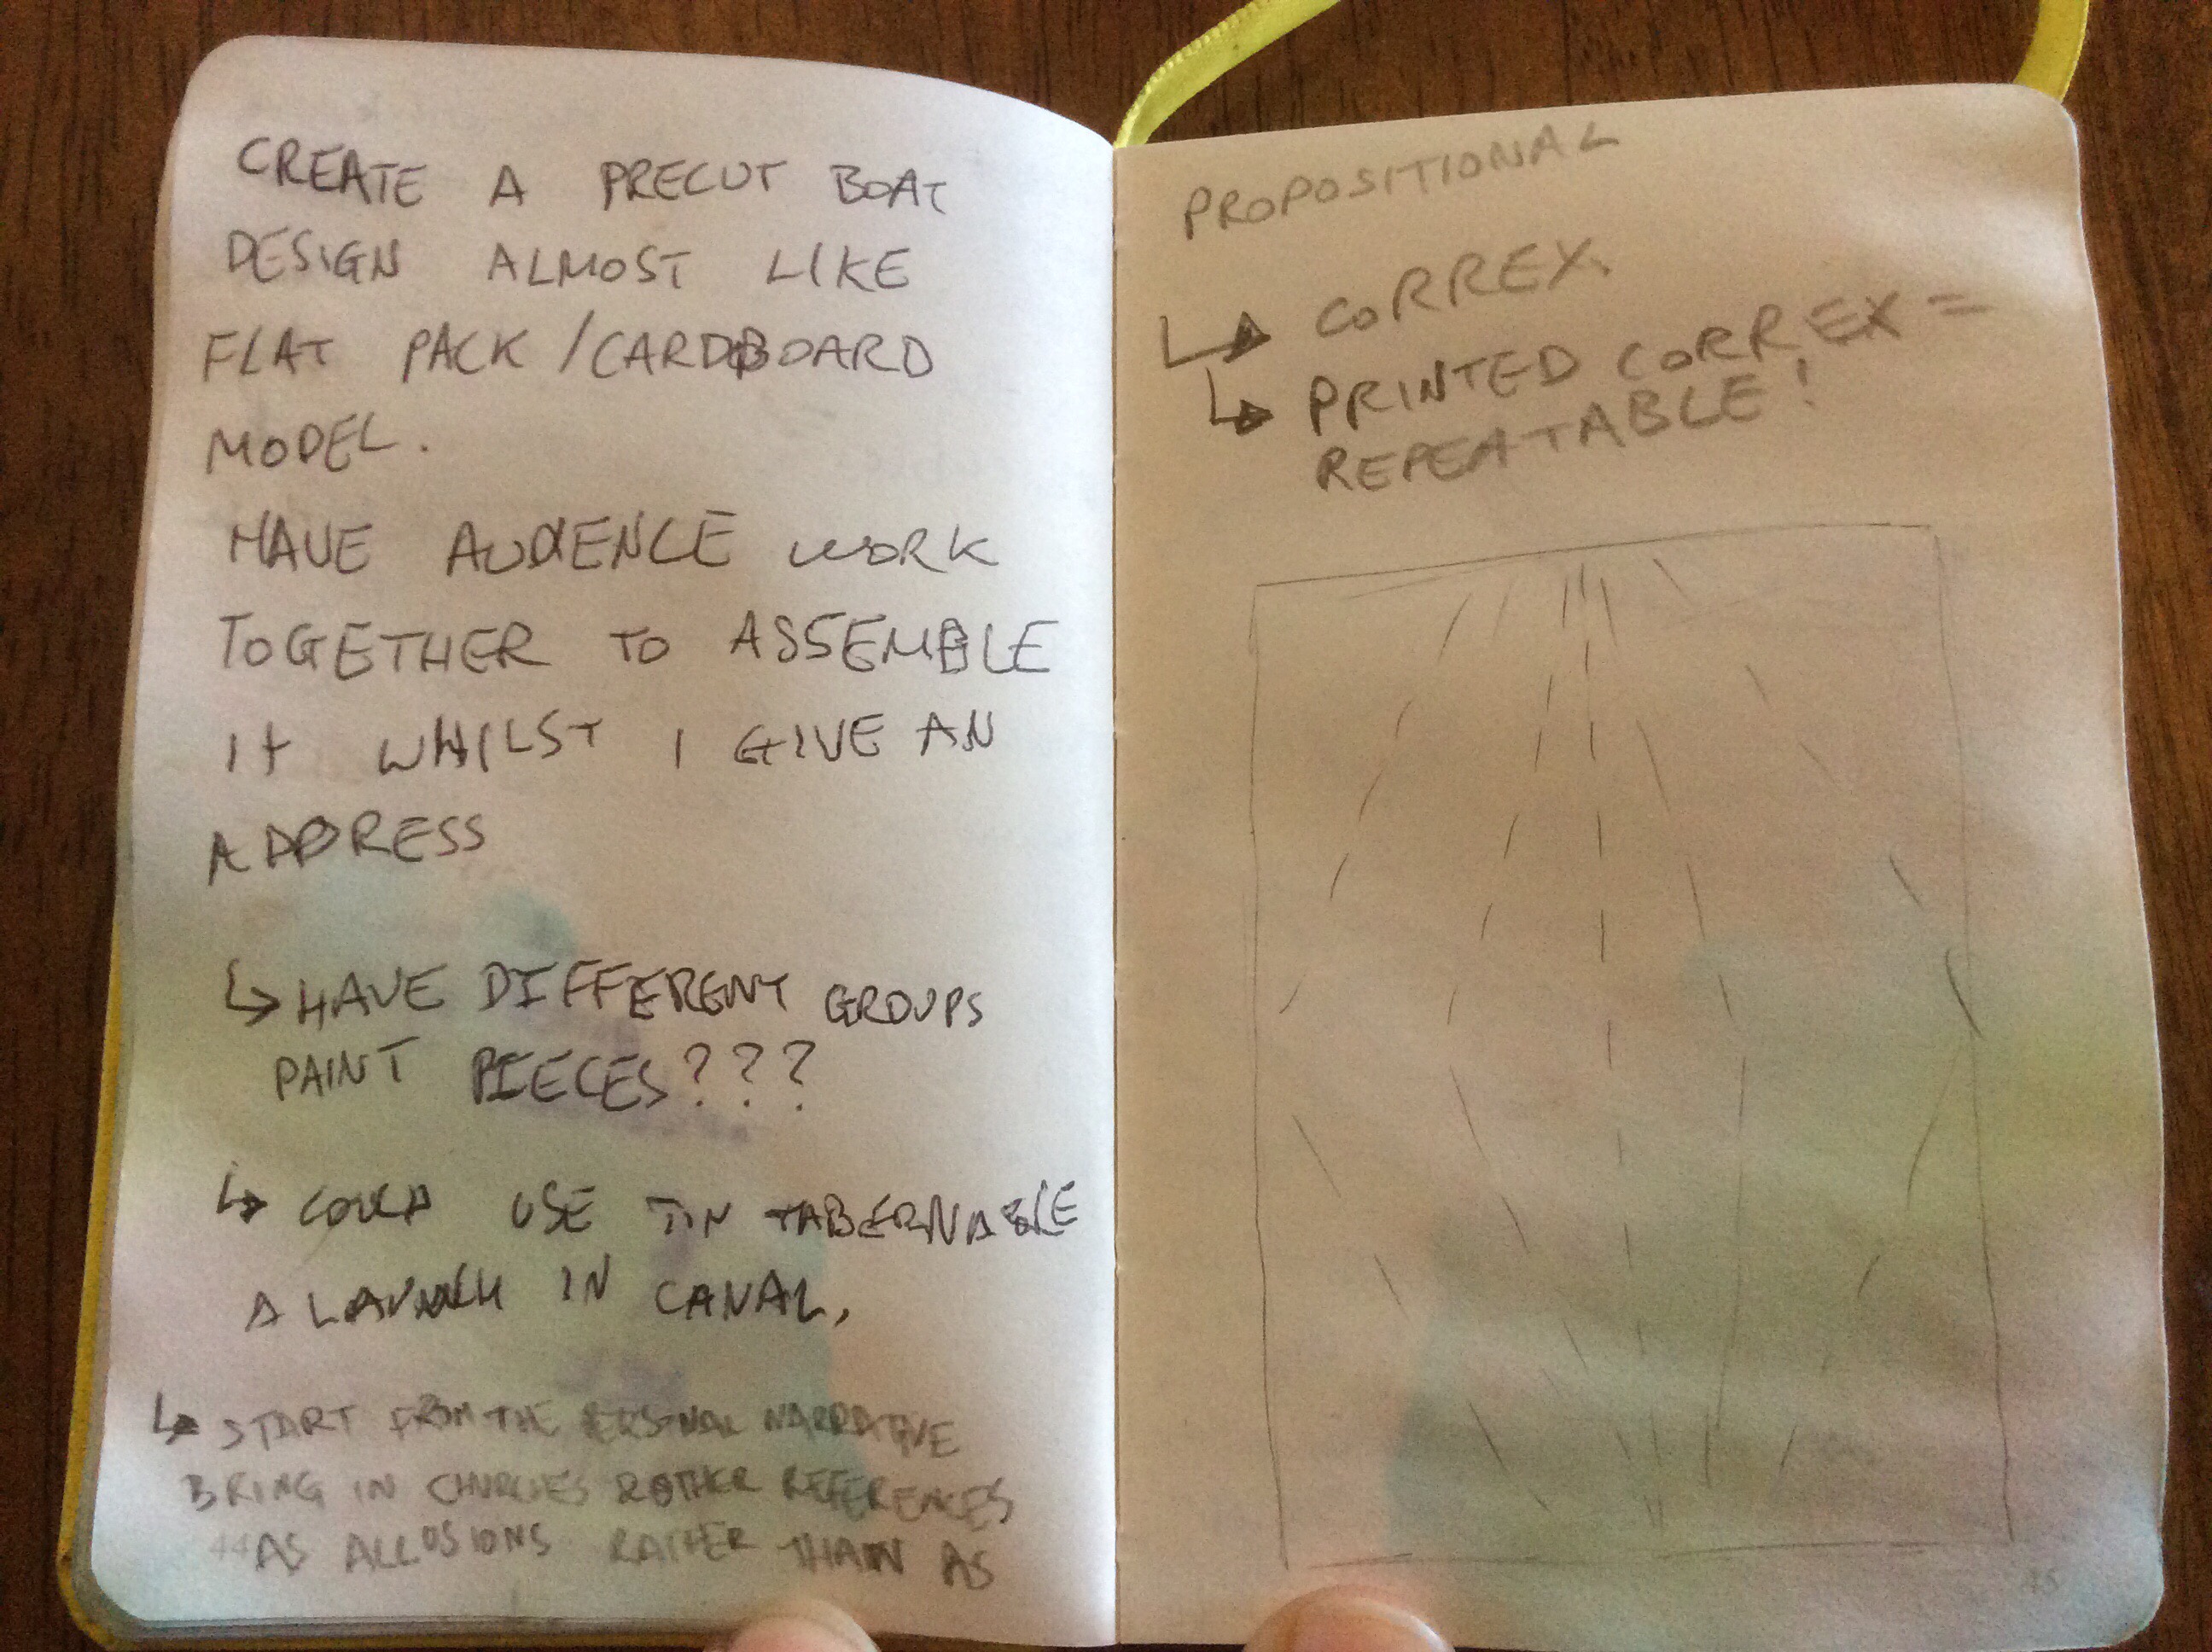 CREATE A PRECUT BOAT
DESIGN ALMOST LIKE
FLAT PACK / CARDBOARD
MODEL.
HAVE AUDIENCE WORK
TOGETHER TO ASSEMBLE
IT WHILST I GIVE AN
ADDRESS
↳ HAVE DIFFERENT GROUPS
PAINT PIECES???
↳ COULD USE TIN TABERNABLE
A LAUNCH IN CANAL,
↳ START FROM THE PERSONAL NARRATIVE
BRING IN & OTHER REFERENCES
44 AS ALLUSIONS RATHER THAN AS
PROPOSITIONAL
↳ CORREX.
↳ PRINTED CORREX =
REPEATABLE!
45